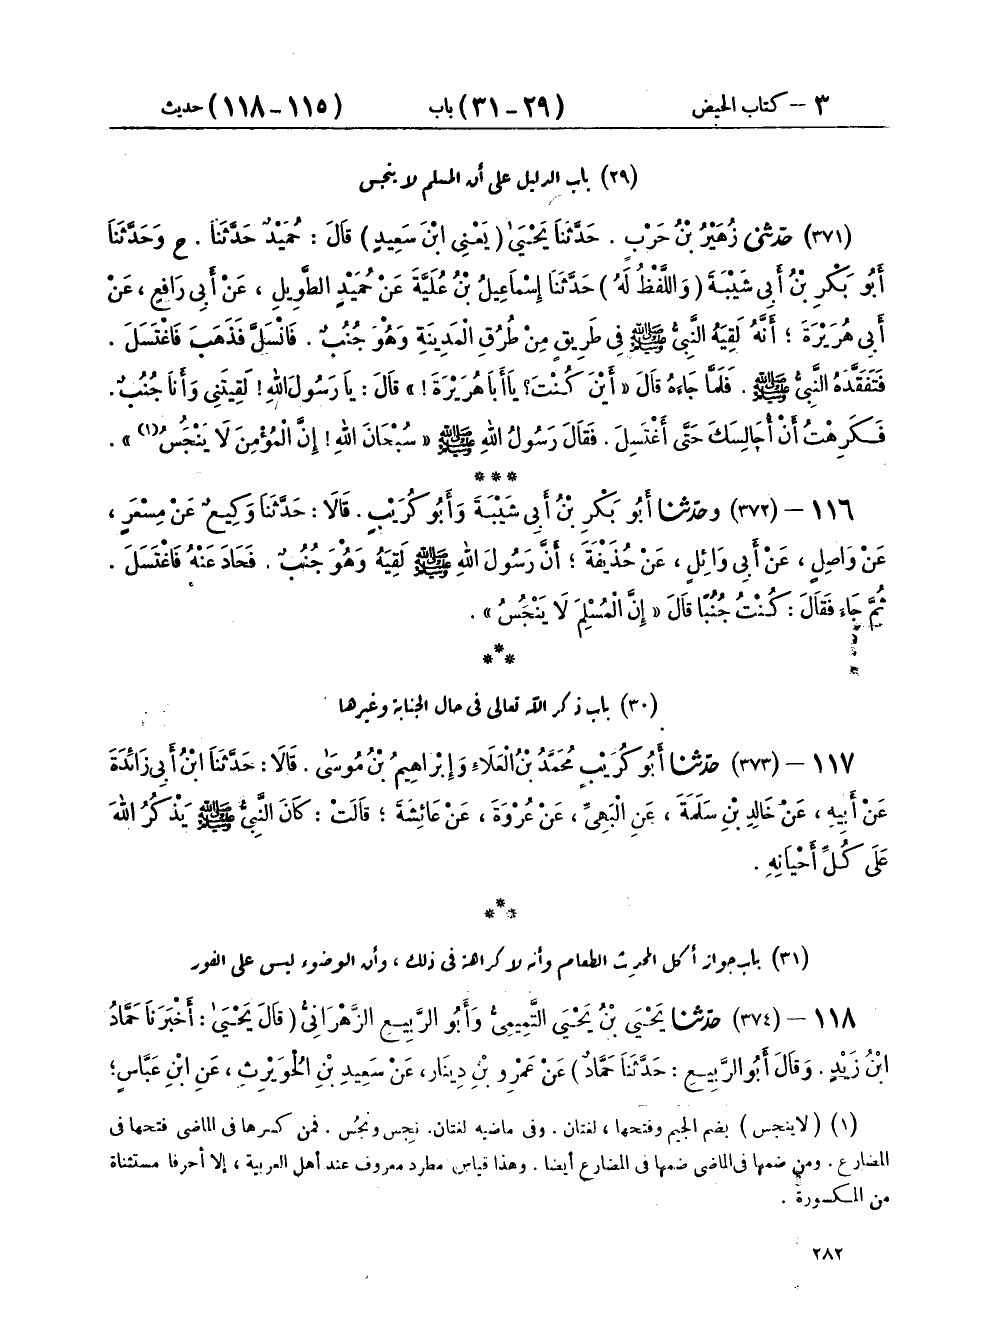 ٣ – كتاب الحيض (٢٩ - ٣١) باب (١١٥ - ١١٨) حديث
(٢٩) باب الدليل على أن المسلم لا ينجس
(٣٧١) حَدَّثَنِي زُهَيْرُ بْنُ حَرْبٍ . حَدَّثَنَا يَحْيَىٰ ( يَعْنِي ابْنَ سَعِيدٍ ) قَالَ : حُمَيْدٌ حَدَّثَنَا . ح وَحَدَّثَنَا
أَبُو بَكْرِ بْنُ أَبِي شَيْبَةَ ( وَاللَّفْظُ لَهُ ) حَدَّثَنَا إِسْمَاعِيلُ بْنُ عُلَيَّةَ عَنْ حُمَيْدٍ الطَّوِيلِ ، عَنْ أَبِي رَافِعٍ ، عَنْ
أَبِي هُرَيْرَةَ ؛ أَنَّهُ لَقِيَهُ النَّبِيُّ ﷺ فِي طَرِيقٍ مِنْ طُرُقِ الْمَدِينَةِ وَهُوَ جُنُبٌ . فَانْسَلَّ فَذَهَبَ فَاغْتَسَلَ .
فَتَفَقَّدَهُ النَّبِيُّ ﷺ . فَلَمَّا جَاءَهُ قَالَ « أَيْنَ كُنْتَ؟ يَا أَبَا هُرَيْرَةَ ! » قَالَ : يَا رَسُولَ اللهِ ! لَقِيتَنِي وَأَنَا جُنُبٌ .
فَكَرِهْتُ أَنْ أُجَالِسَكَ حَتَّى أَغْتَسِلَ . فَقَالَ رَسُولُ اللهِ ﷺ « سُبْحَانَ اللهِ ! إِنَّ الْمُؤْمِنَ لَا يَنْجُسُ(١) » .
* * *
١١٦ – (٣٧٢) وحَدَّثَنَا أَبُو بَكْرِ بْنُ أَبِي شَيْبَةَ وَأَبُو كُرَيْبٍ . قَالَا : حَدَّثَنَا وَكِيعٌ عَنْ مِسْعَرٍ ،
عَنْ وَاصِلٍ ، عَنْ أَبِي وَائِلٍ ، عَنْ حُذَيْفَةَ ؛ أَنَّ رَسُولَ اللهِ ﷺ لَقِيَهُ وَهُوَ جُنُبٌ . فَحَادَ عَنْهُ فَاغْتَسَلَ .
ثُمَّ جَاءَ فَقَالَ : كُنْتُ جُنُبًا قَالَ « إِنَّ الْمُسْلِمَ لَا يَنْجُسُ » .
* * *
(٣٠) باب ذكر الله تعالى في حال الجنابة وغيرها
١١٧ – (٣٧٣) حَدَّثَنَا أَبُو كُرَيْبٍ مُحَمَّدُ بْنُ الْعَلَاءِ وَإِبْرَاهِيمُ بْنُ مُوسَى . قَالَا : حَدَّثَنَا ابْنُ أَبِي زَائِدَةَ
عَنْ أَبِيهِ ، عَنْ خَالِدِ بْنِ سَلَمَةَ ، عَنِ الْبَهِيِّ ، عَنْ عُرْوَةَ ، عَنْ عَائِشَةَ ؛ قَالَتْ : كَانَ النَّبِيُّ ﷺ يَذْكُرُ اللهَ
عَلَى كُلِّ أَحْيَانِهِ .
* * *
(٣١) باب جواز أكل المحدث الطعام وأنه لا كراهة في ذلك ، وأن الوضوء ليس على الفور
١١٨ – (٣٧٤) حَدَّثَنَا يَحْيَى بْنُ يَحْيَى التَّمِيمِيُّ وَأَبُو الرَّبِيعِ الزَّهْرَانِيُّ ( قَالَ يَحْيَىٰ : أَخْبَرَنَا حَمَّادُ
ابْنُ زَيْدٍ . وَقَالَ أَبُو الرَّبِيعِ : حَدَّثَنَا حَمَّادٌ ) عَنْ عَمْرِو بْنِ دِينَارٍ ، عَنْ سَعِيدِ بْنِ الْحُوَيْرِثِ ، عَنِ ابْنِ عَبَّاسٍ ؛
(١) ( لا ينجس ) بضم الجيم وفتحها ، لغتان . وفي ماضيه لغتان . نجِس ونجُس . فمن كسرها في الماضي فتحها في
المضارع . ومن ضمها في الماضي ضمها في المضارع أيضا . وهذا قياس مطرد معروف عند أهل العربية ، إلا أحرفا مستثناة
من المكسورة .
٢٨٢